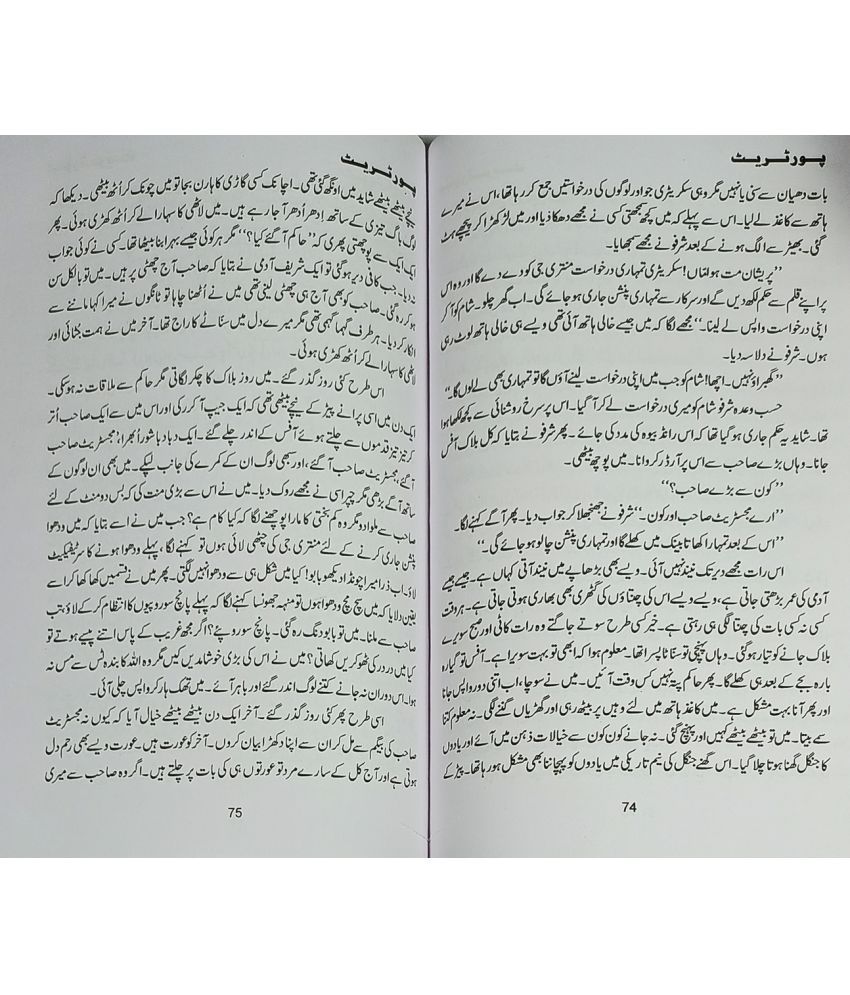 پورٹریٹ
بات دھیان سے سنی یا نہیں مگر وہی سکریٹری جو اور لوگوں کی درخواستیں جمع کر رہا تھا، اس نے میرے
ہاتھ سے کاغذ لے لیا۔ اس سے پہلے کہ میں کچھ سمجھتی کسی نے مجھے دھکا دیا اور میں لڑکھڑا کر پیچھے ہٹ
گئی۔ بھیڑ سے الگ ہونے کے بعد شرفو نے مجھے سمجھایا۔
’’پریشان مت ہو امّاں! سکریٹری تمہاری درخواست منتری جی کو دے دے گا اور وہ اس
پر اپنے قلم سے حکم لکھ دیں گے اور سرکار سے تمہاری پنشن جاری ہو جائے گی۔ اب گھر چلو۔ شام کو آ کر
اپنی درخواست واپس لے لینا۔‘‘ مجھے لگا کہ میں جیسے خالی ہاتھ آئی تھی ویسے ہی خالی ہاتھ لوٹ رہی
ہوں۔ شرفو نے دلاسہ دیا۔
’’گھبراؤ نہیں۔ اچھا! شام کو جب میں اپنی درخواست لینے آؤں گا تو تمہاری بھی لے لوں گا۔‘‘
حسب وعدہ شرفو شام کو میری درخواست لے کر آ گیا۔ اس پر سرخ روشنائی سے کچھ لکھا ہوا
تھا۔ شاید یہ حکم جاری ہو گیا تھا کہ اس رانڈ بیوہ کی مدد کی جائے۔ پھر شرفو نے بتایا کہ کل بلاک آفس
جانا۔ وہاں بڑے صاحب سے اس پر آرڈر کروانا۔ میں پوچھ بیٹھی۔
’’کون سے بڑے صاحب؟‘‘
’’ارے مجسٹریٹ صاحب اور کون۔‘‘ شرفو نے جھنجھلا کر جواب دیا۔ پھر آگے کہنے لگا۔
’’اس کے بعد تمہارا کھاتا بینک میں کھلے گا اور تمہاری پنشن چالو ہو جائے گی۔‘‘
اس رات مجھے دیر تک نیند نہیں آئی۔ ویسے بھی بڑھاپے میں نیند آتی کہاں ہے۔ جیسے جیسے
آدمی کی عمر بڑھتی جاتی ہے، ویسے ویسے اس کی چنتاؤں کی گٹھری بھی بھاری ہوتی جاتی ہے۔ ہر وقت
کسی نہ کسی بات کی چنتا لگی ہی رہتی ہے۔ خیر کسی طرح سوتے جاگتے وہ رات کاٹی اور صبح سویرے
بلاک جانے کو تیار ہو گئی۔ وہاں پہنچی تو سنّاٹا پسرا تھا۔ معلوم ہوا کہ ابھی تو بہت سویرا ہے۔ آفس تو گیارہ
بارہ بجے کے بعد ہی کھلے گا۔ پھر حاکم پتہ نہیں کس وقت آئیں۔ میں نے سوچا، اب اتنی دور واپس جانا
اور پھر آنا بہت مشکل ہے۔ میں کاغذ ہاتھ میں لئے وہیں پر بیٹھ رہی اور گھڑیاں گننے لگی۔ نہ معلوم کتنا
سمے بیتا۔ میں تو بیٹھے بیٹھے کہیں اور پہنچ گئی۔ نہ جانے کون کون سے خیالات ذہن میں آئے اور یادوں
کا جنگل گھنا ہوتا چلا گیا۔ اس گھنے جنگل کی نیم تاریکی میں یادوں کو پہچاننا بھی مشکل ہو رہا تھا۔ پیڑ کے
74
پورٹریٹ
نیچے بیٹھے بیٹھے شاید میں اونگھ گئی تھی۔ اچانک کسی گاڑی کا ہارن بجا تو میں چونک کر اُٹھ بیٹھی۔ دیکھا کہ
لوگ باگ تیزی کے ساتھ اِدھر اُدھر آ جا رہے ہیں۔ میں لاٹھی کا سہارا لے کر اُٹھ کھڑی ہوئی۔ پھر
ایک ایک سے پوچھتی پھری کہ ’’حاکم آ گئے کیا؟‘‘ مگر ہر کوئی جیسے بہرا بنا بیٹھا تھا۔ کسی نے کوئی جواب
نہ دیا۔ جب کافی دیر ہو گئی تو ایک شریف آدمی نے بتایا کہ صاحب آج چھٹی پر ہیں۔ میں تو بالکل سن
ہو کر رہ گئی۔ صاحب کو بھی آج ہی چھٹی لینی تھی میں نے اُٹھنا چاہا تو ٹانگوں نے میرا کہا ماننے سے
انکار کر دیا۔ ہر طرف گہما گہمی تھی مگر میرے دل میں سنّاٹے کا راج تھا۔ آخر میں نے ہمت جٹائی اور
لاٹھی کا سہارا لے کر اُٹھ کھڑی ہوئی۔
اس طرح کئی روز گذر گئے۔ میں روز بلاک کا چکر لگاتی مگر حاکم سے ملاقات نہ ہو سکی۔
ایک دن میں اسی پرانے پیڑ کے نیچے بیٹھی تھی کہ ایک جیپ آ کر رکی اور اس میں سے ایک صاحب اُتر
کر تیز تیز قدموں سے چلتے ہوئے آفس کے اندر چلے گئے۔ ایک دبا دبا شور اُبھرا، ’مجسٹریٹ صاحب
آ گئے، مجسٹریٹ صاحب آ گئے‘ اور سبھی لوگ ان کے کمرے کی جانب لپکے۔ میں بھی ان لوگوں کے
ساتھ آگے بڑھی مگر چپراسی نے مجھے روک دیا۔ میں نے اس سے بڑی منت کی کہ بس دو منٹ کے لئے
صاحب سے ملوا دو مگر وہ کم بختی کا مارا پوچھنے لگا کہ کیا کام ہے؟ جب میں نے اسے بتایا کہ میں ودھوا
پنشن جاری کرنے کے لئے منتری جی کی چٹھی لائی ہوں تو کہنے لگا، پہلے ودھوا ہونے کا سرٹیفکیٹ
لاؤ۔ اب ذرا میرا چونڈا دیکھو بابو! کیا میں شکل ہی سے ودھوا نہیں لگتی۔ پھر میں نے قسمیں کھا کھا کر اسے
یقین دلایا کہ میں سچ مچ ودھوا ہوں تو منہہ جھونسا کہنے لگا کہ پہلے پانچ سو روپیوں کا انتظام کر کے لاؤ، تب
صاحب سے ملنا۔ میں تو بابو دنگ رہ گئی۔ پانچ سو روپئے؟ اگر مجھ غریب کے پاس اتنے پیسے ہوتے تو
کیا میں در در کی ٹھوکریں کھاتی؟ میں نے اس کی بڑی خوشامدیں کیں مگر وہ اللہ کا بندہ ٹس سے مس نہ
ہوا۔ اس دوران نہ جانے کتنے لوگ اندر گئے اور باہر آئے۔ میں تھک ہار کر واپس چلی آئی۔
اسی طرح پھر کئی روز گذر گئے۔ آخر ایک دن بیٹھے بیٹھے خیال آیا کہ کیوں نہ مجسٹریٹ
صاحب کی بیگم سے مل کر ان سے اپنا دکھڑا بیان کروں۔ آخر کو عورت ہیں۔ عورت ویسے بھی رحم دل
ہوتی ہے اور آج کل کے سارے مرد تو عورتوں ہی کی بات پر چلتے ہیں۔ اگر وہ صاحب سے میری
75